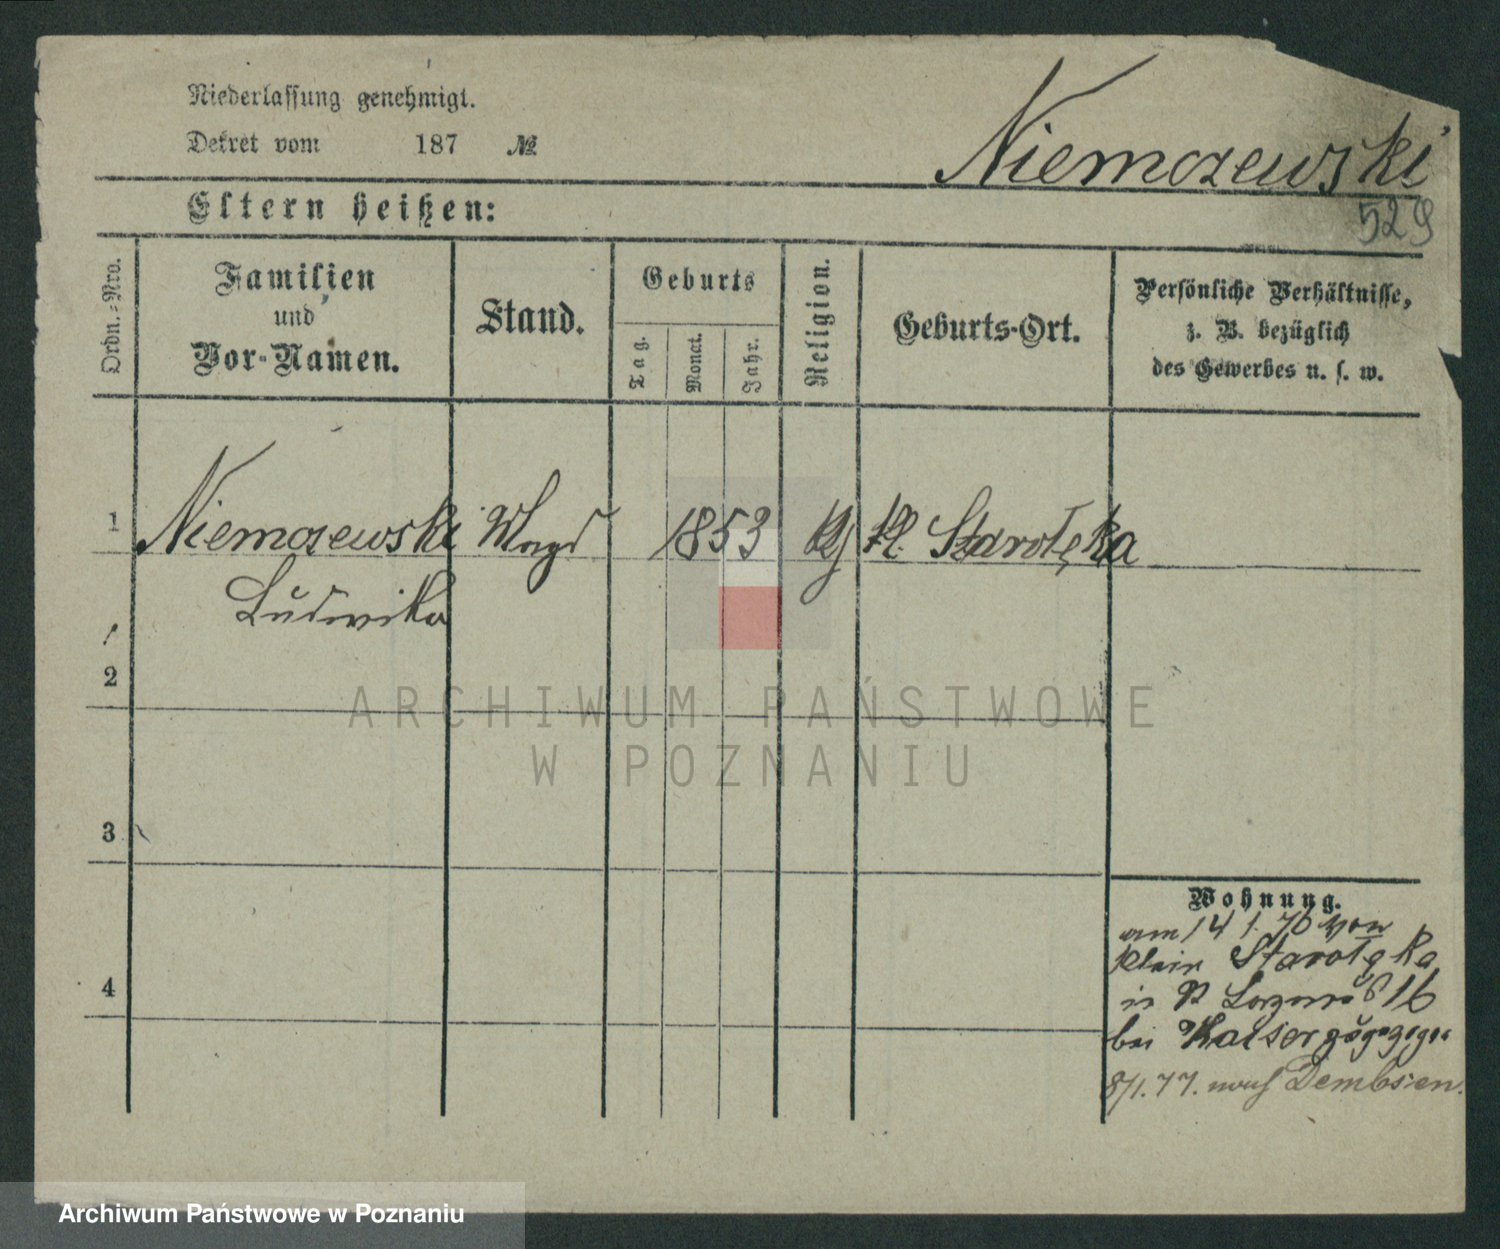 Niederlassung genehmigt.
Dekret vom 187 №
Niemozewski
Eltern heißen:
529
Ordn.-Nro.
Familien
und
Vor-Namen.
Stand.
Geburts
Tag.
Monat.
Jahr.
Religion.
Geburts-Ort.
Persönliche Verhältnisse,
z. B. bezüglich
des Gewerbes u. s. w.
1 Niemozewski Magd 1853 Kl. Starołęka
Ludwika
2
ARCHIWUM PAŃSTWOWE
W POZNANIU
3
4
Wohnung.
am 14 1. 76 von
Klein Starołęka
in 16
bei Kaiser zugezogen
8/1. 77. nach Dembsen.
Archiwum Państwowe w Poznaniu